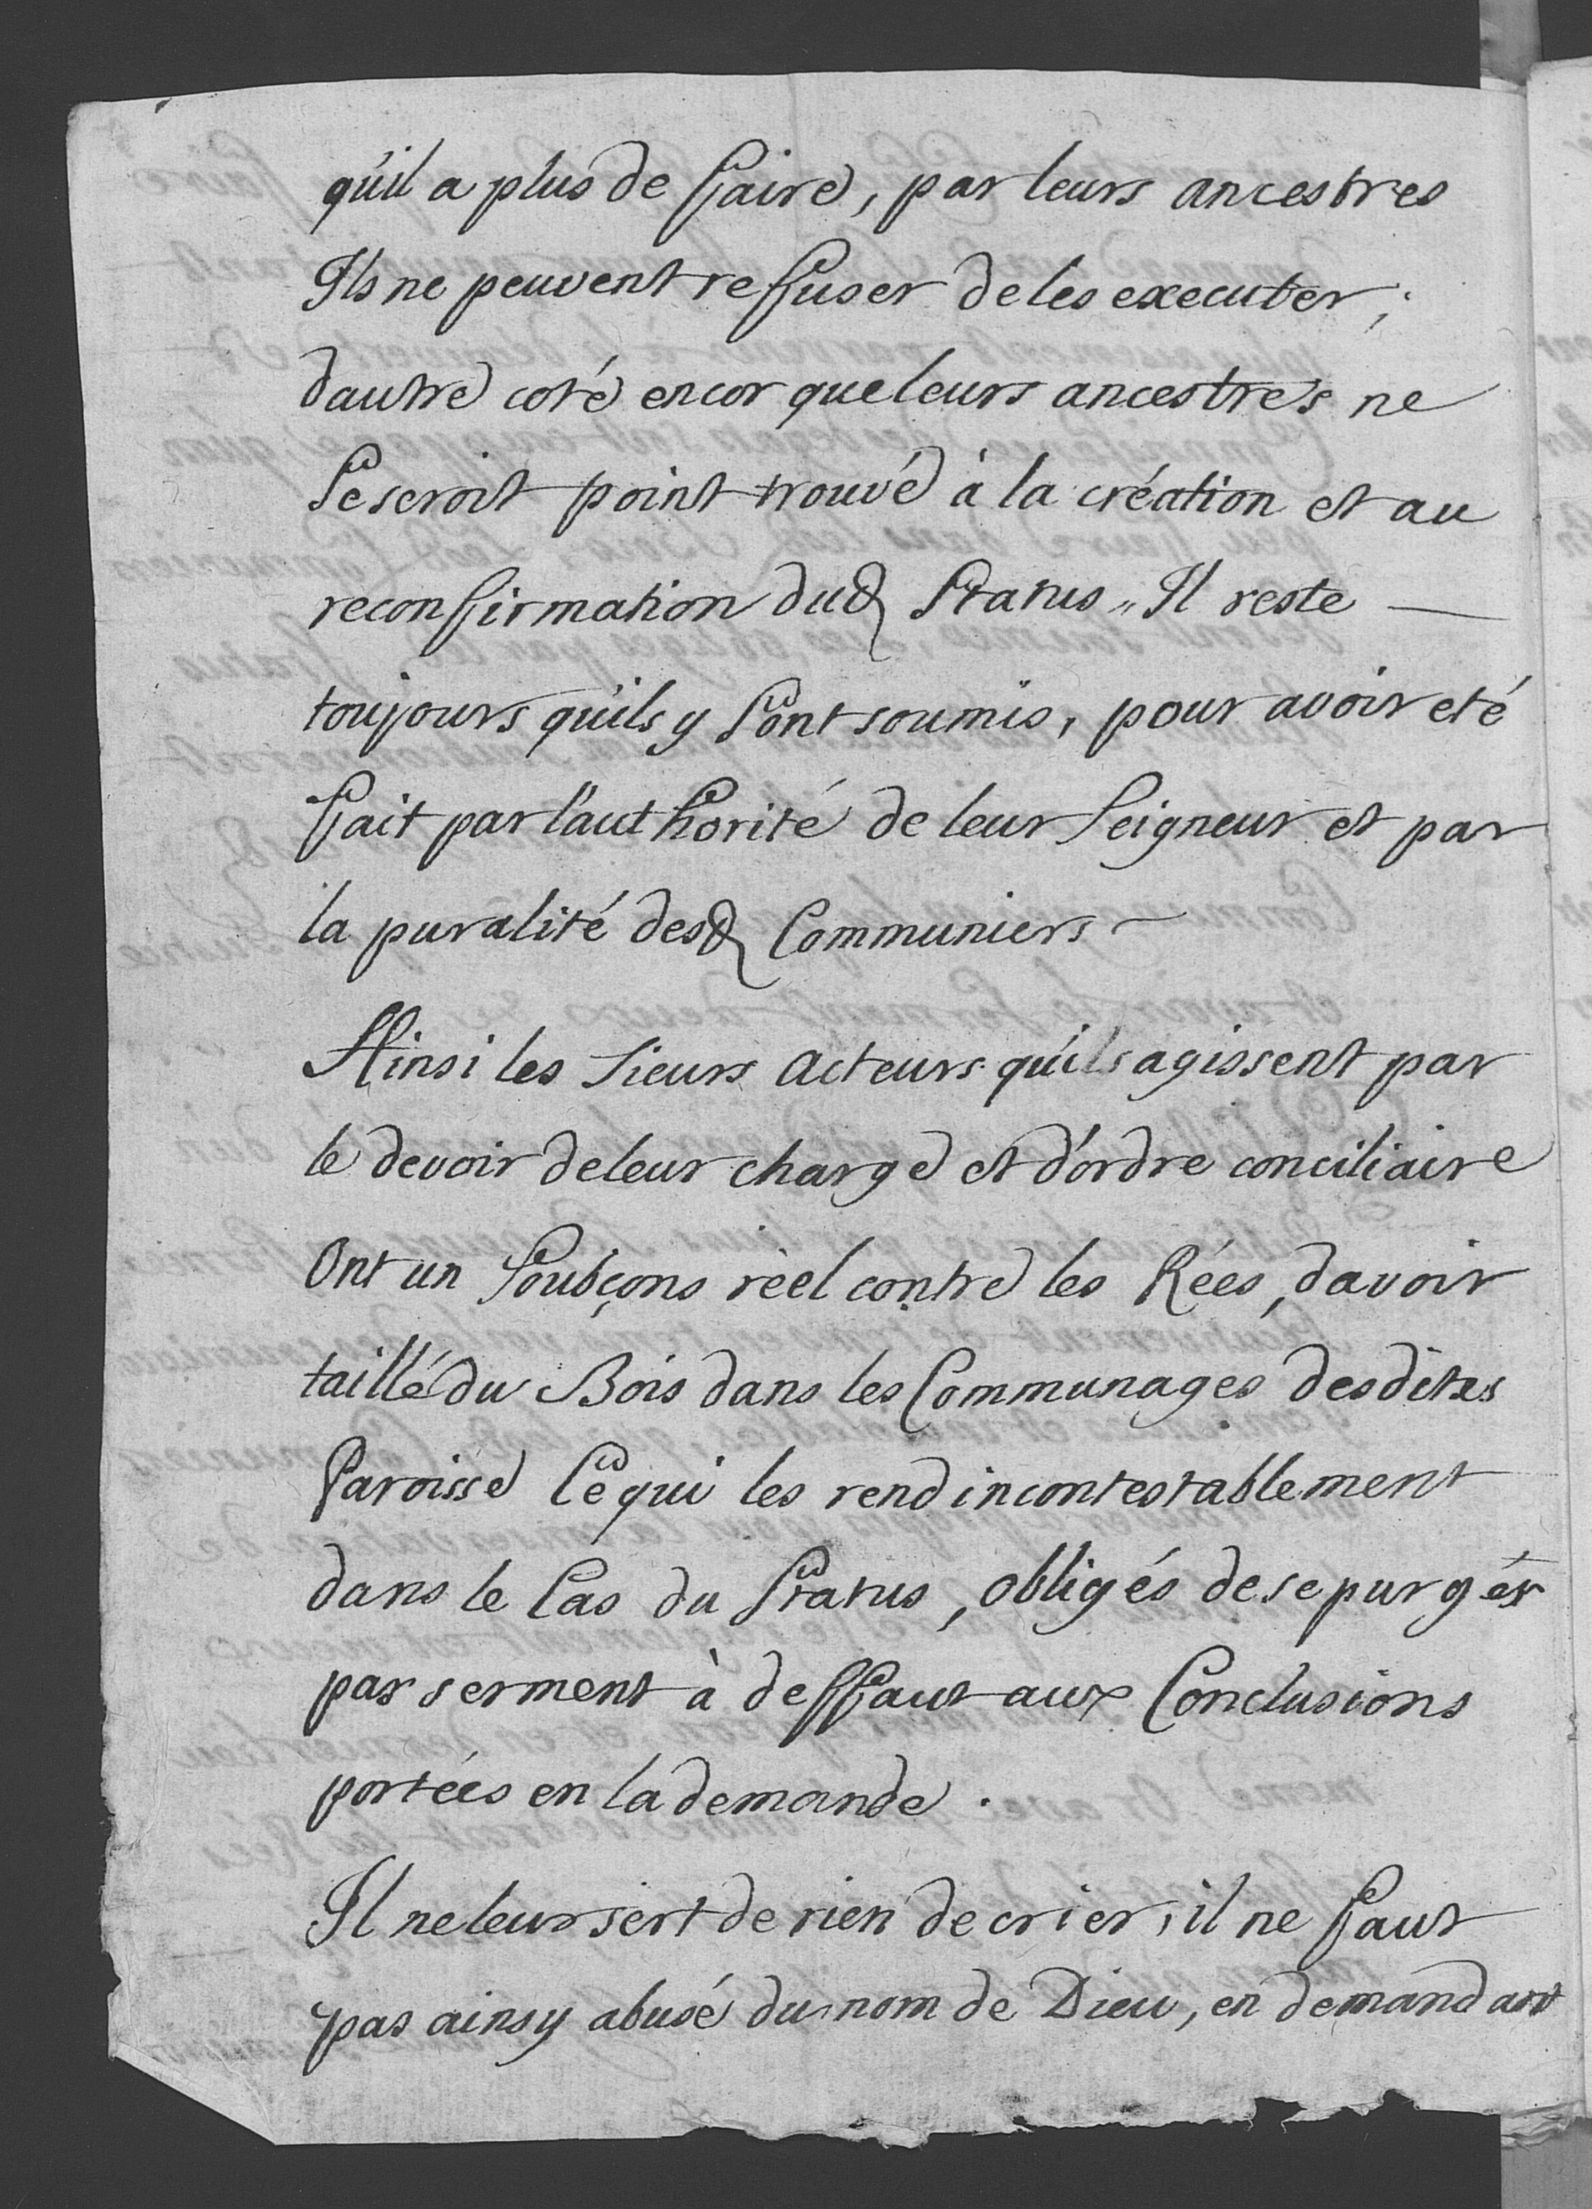 qu'il a plus de faire, par leurs ancestres
Ils ne peuvent reffuser de les executer;
dautre coté encor que leurs ancestres ne
Se seroit point trouvé à la création et au
reconfirmation dud Status „ Il reste —
toujours qu'ils y Sont soumis, pour avoir eté
fait par l'authorité de leur Seigneur et par
la puralité desd Communiers ~
Ainsi les Sieurs Acteurs qu'ils agissent par
le devoir de leur charge et d'ordre conciliaire
Ont un Soubçons réel contre les Rées, davoir
taillé du Bois dans les Communages desdites
Paroisse Ce qui les rend incontestablement
dans le Cas du Status, obligés de se purgér
par serment à deffaut aux Conclusions
portées en la demande .
Il ne leur sert de rien de crier, il ne faut
pas ainsy abusé du nom de Dieu, en demandant